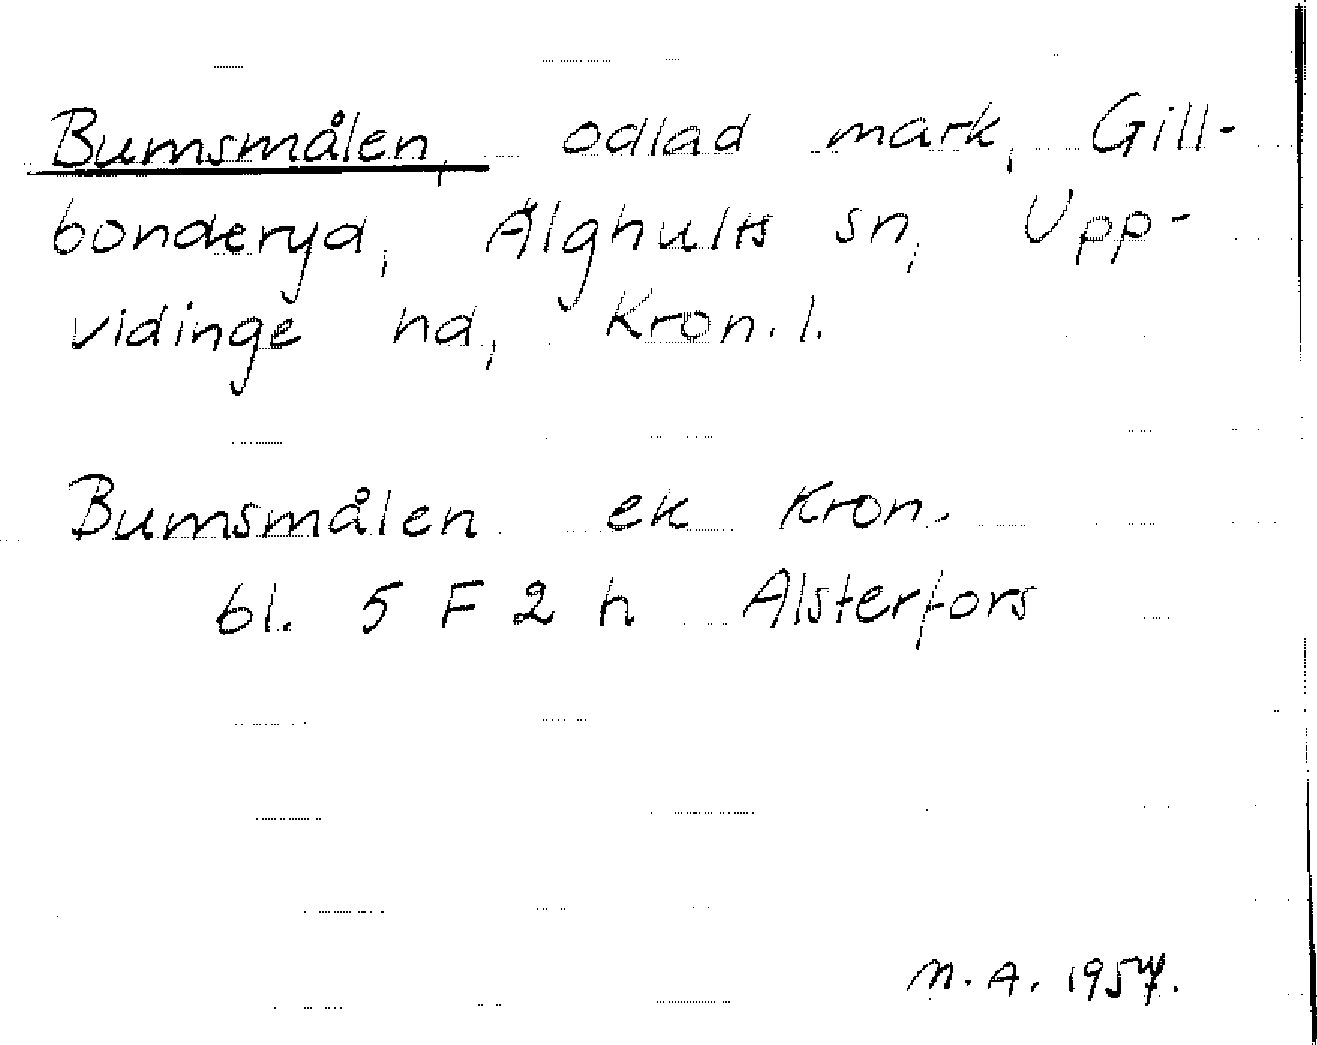 Bumsmålen, odlad mark, Gill-
bonderyd, Älghults sn, Upp-
vidinge hd, Kron. l.
Bumsmålen ek Kron.
bl. 5 F 2 h Alsterfors
M.A. 1957.